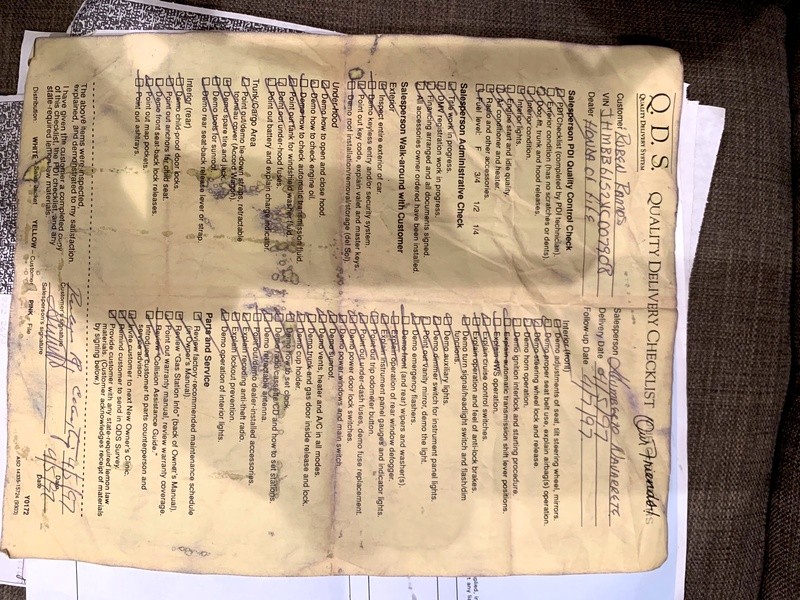 Q.D.S. QUALITY DELIVERY CHECKLIST
QUALITY DELIVERY SYSTEM
Our Friends!
Customer Ruben Ramos
VIN
Dealer HONDA OF
Salesperson Navarrete
Delivery Date
Follow-up Date
Salesperson PDI Quality Control Check
PDI checklist (completed by PDI technician).
Exterior condition (has no scratches or dents).
Door, trunk and hood releases.
Interior condition.
Interior lights.
Engine start and idle quality.
Air conditioner and heater.
Radio and other accessories.
Fuel level: F 3/4 1/2 1/4
Salesperson Administrative Check
Title work in progress.
DMV registration work in progress.
Financing arranged and all documents signed.
All accessories owner ordered have been installed.
Salesperson Walk-around with Customer
Exterior
Inspect entire exterior of car.
Demo keyless entry and/or security system.
Point out key code, explain valet and master keys.
Demo roof installation/removal/storage (del Sol).
Underhood
Demo how to open and close hood.
Demo how to check engine oil.
Demo how to check automatic transmission fluid.
Point out tank for windshield washer fluid.
Point out under-hood fuses.
Point out battery and explain charge indicator.
Trunk/Cargo Area
Point out/demo tie-down straps, retractable
tonneau cover (Accord Wagon).
Demo rear seat-back release lever or strap.
Interior (rear)
Demo child-proof door locks.
Point out anchors for child seat.
Demo front seat-back lock releases.
Point out map pockets.
Point out ashtrays.
Interior (front)
Demo adjustments of seat, tilt steering wheel, mirrors.
Demo proper seat belt use, explain airbag(s) operation.
Demo steering wheel lock and release.
Demo ignition interlock and starting procedure.
Demo horn operation.
Explain automatic transmission shift lever positions.
Explain 4WS operation.
Explain cruise control switches.
Explain operation and feel of anti-lock brakes.
Demo turn signal/headlight switch and flash/dim
functions.
Demo auxiliary lights.
Demo dimmer switch for instrument panel lights.
Point out vanity mirror, demo the light.
Demo emergency flashers.
Demo front (and rear) wipers and washer(s).
Explain operation of rear window defogger.
Explain instrument panel gauges and indicator lights.
Point out trip odometer button.
Point out under-dash fuses, demo fuse replacement.
Demo power door lock switches.
Demo power windows and main switch.
Demo sunroof.
Demo vents, heater and A/C in all modes.
Demo trunk and gas door inside release and lock.
Demo cup holder.
Demo how to set clock.
Demo radio/cassette/CD and how to set stations.
Explain recording anti-theft radio.
Explain lockout prevention.
Demo operation of interior lights.
Parts and Service
Review factory-recommended maintenance schedule
(in Owner's Manual).
Review "Gas Station Info" (back of Owner's Manual).
Point out warranty manual, review warranty coverage.
Review "Collision Assistance Guide."
Introduce customer to parts counterperson and
Invite customer to next New Owner's Clinic.
Remind customer to send in QDS Survey.
Provide customer with any state-required lemon law
materials. (Customer acknowledges receipt of materials
by signing below.)
The above items were inspected,
explained, and demonstrated to my satisfaction.
Customer's signature
Date
I have given the customer a completed copy
of this checklist, the PDI checklist, and any
state-required lemon law materials.
Salesperson's signature
Date
Distribution: WHITE - Sales Jacket YELLOW - Customer PINK - File
Y0172